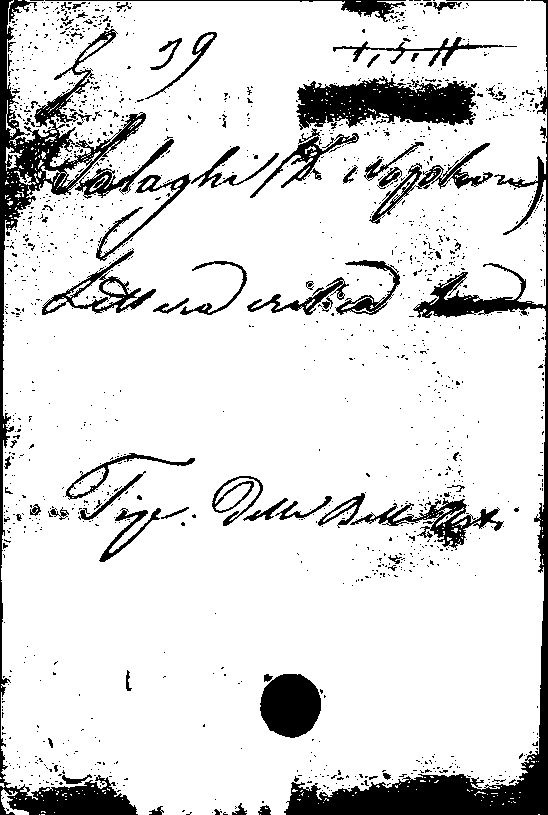 G. 39 1, 5. 11
Sadaghi (D. Napoleone)
Lettera critica
Tip. Delle Belle Arti